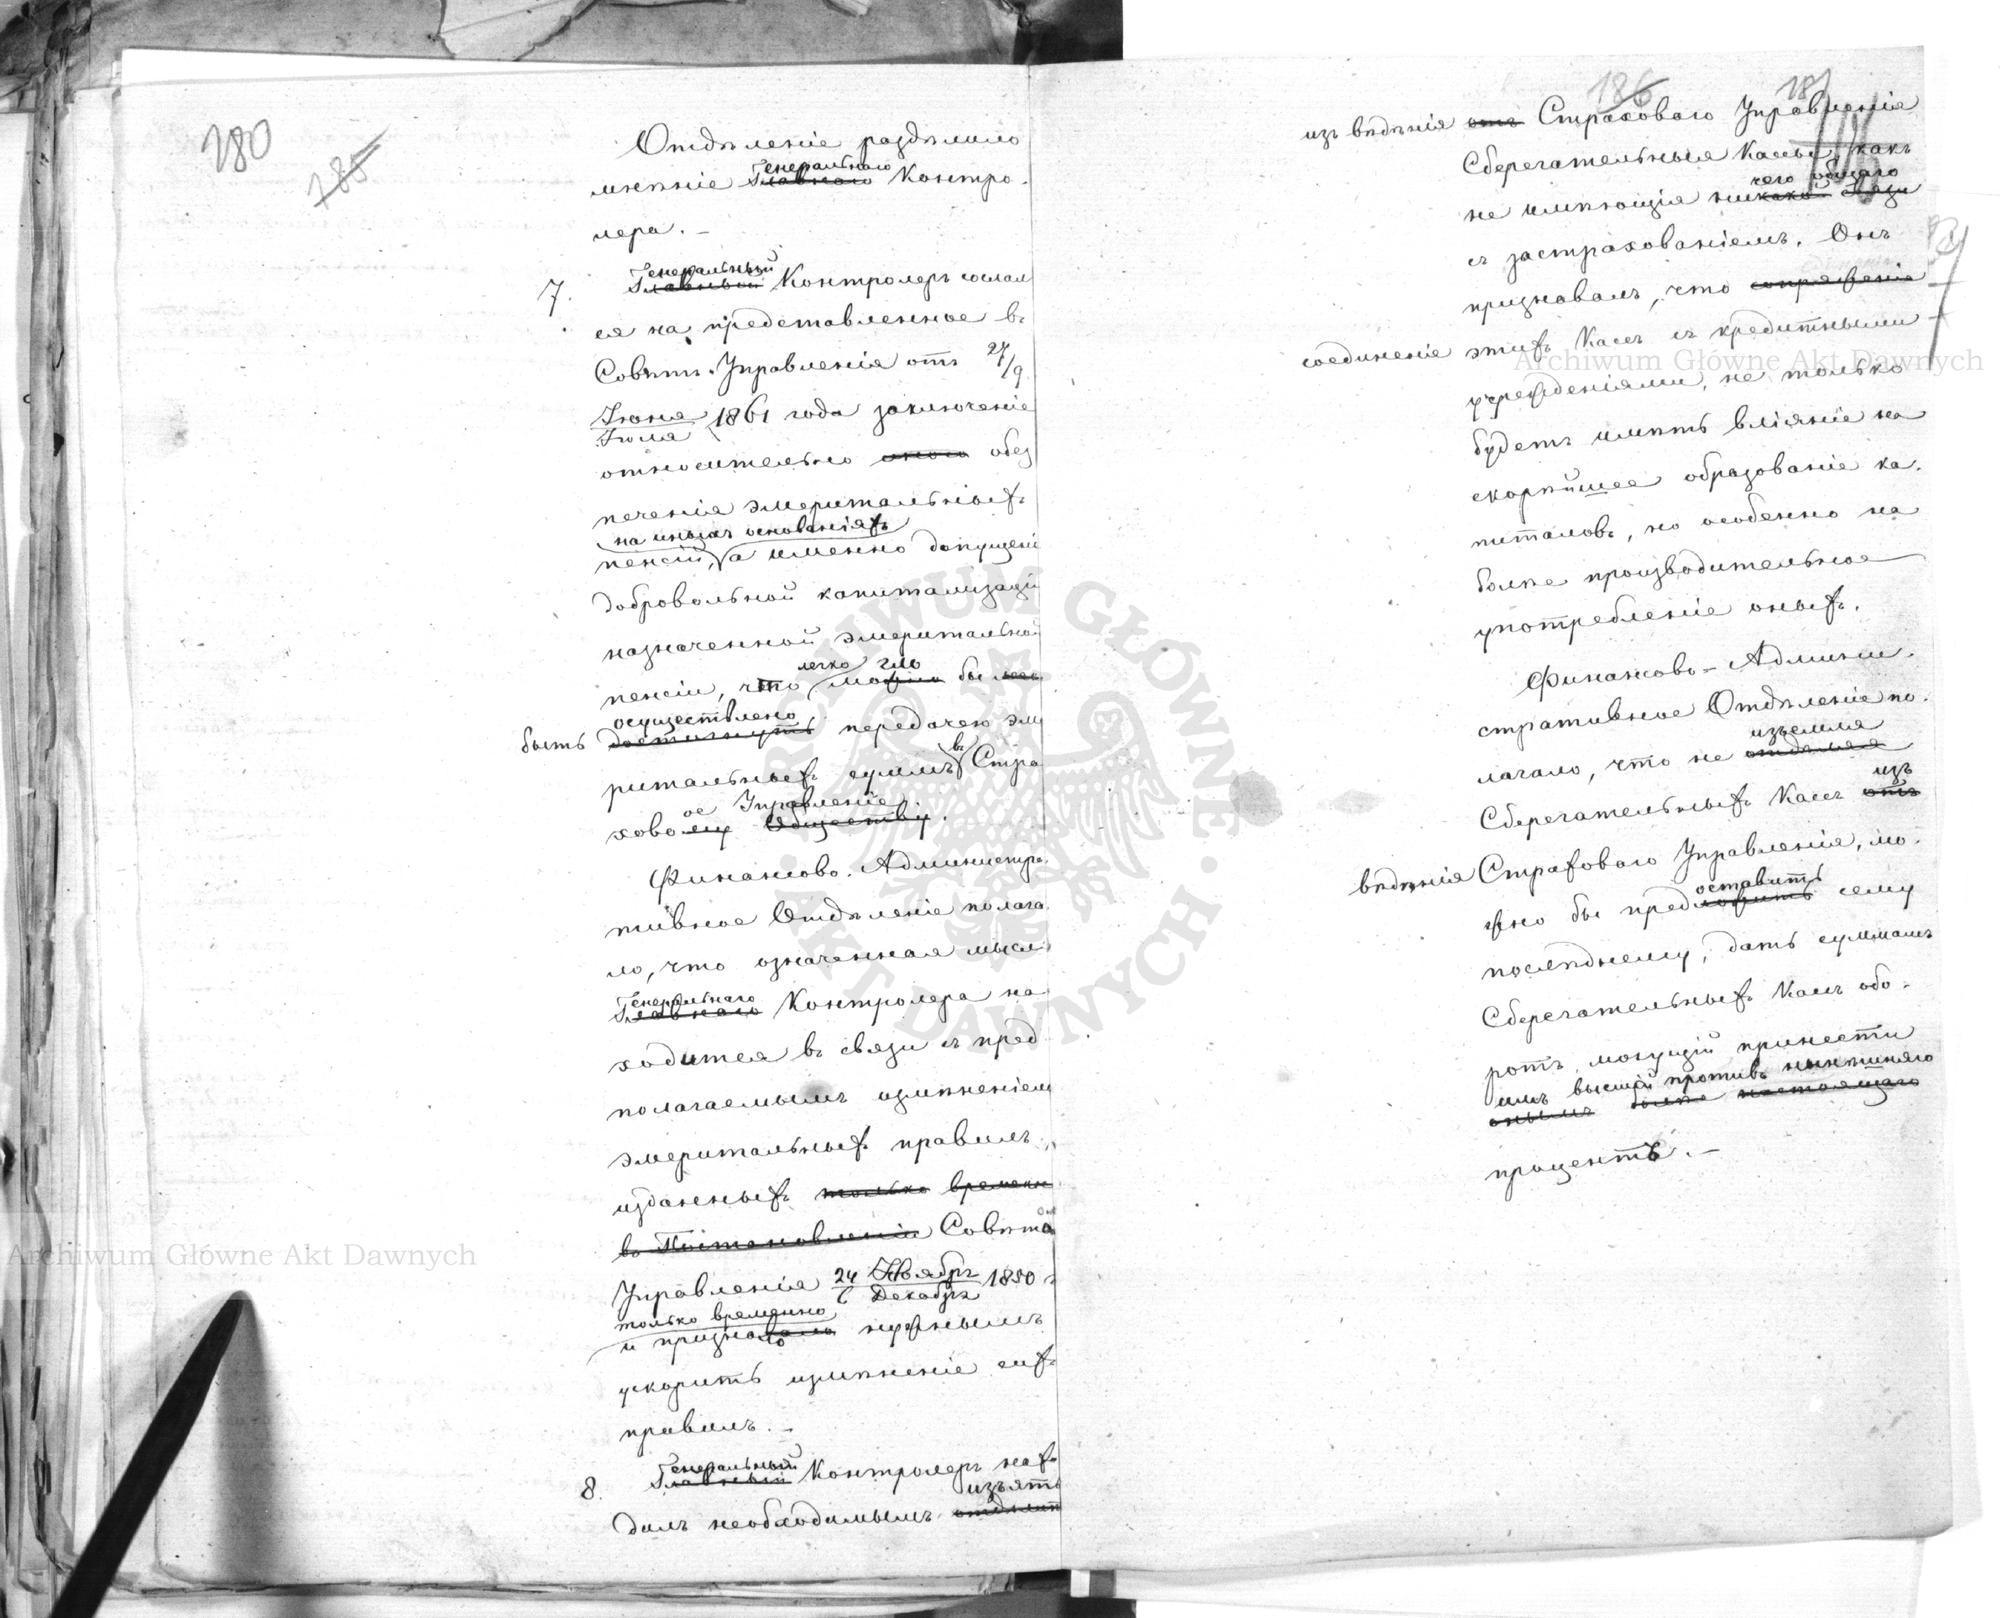 180
185
Отдѣленіе раздѣлило
Генеральнаго
мнѣніе Главнаго Контро-
лера. —
Генеральный
7. Главный Контролеръ сослал
ся на представленное въ
Совѣтъ Управленія отъ 27/9
Іюня 1861 года заключеніе
Іюля
относительно обез
печенія эмеритальныхъ
на иныхъ основаніяхъ
пенсій, а именно допущені
добровольной капитализаціи
назначенной эмеритальной
легко гло
пенсіи, что могло бы
осуществлено
быть достигнуть передачею эме
ритальныхъ суммъ въ Стра
ое Управленіе
ховому Обществу.
Финансово-Администра
тивное Отдѣленіе полага
ло, что означенная мысл
Генеральнаго
Главнаго Контролера на
ходится въ связи съ пред
полагаемымъ измѣненіем
эмеритальныхъ правилъ,
изданныхъ только времени
въ Постановленіи Совѣта
Управленія 24 Ноября 1850 г
6 Декабря
только временно
и признало нужнымъ
ускорить измѣненіе сихъ
правилъ. —
Генеральный
8. Главный Контролеръ нахо
изъять
дилъ необходимымъ отдѣлить
186
181
изъ вѣдѣнія отъ Страховаго Управленія
Сберегательныя Кассы, какъ
чего общаго
не имѣющія никакой связи
съ застрахованіемъ. Онъ
признавалъ, что сопряженіе
соединеніе этихъ Кассъ съ кредитными
учрежденіями, не только
будетъ имѣть вліяніе на
скорѣйшее образованіе ка-
питаловъ, но особенно на
болѣе производительное
употребленіе оныхъ.
Финансово-Админи-
стративное Отдѣленіе по-
изъемля
лагало, что не отдѣляя
изъ
Сберегательныхъ Кассъ отъ
вѣдѣнія Страховаго Управленія, мо-
оставить
жно бы предложить сему
послѣднему, дать суммамъ
Сберегательныхъ Кассъ обо-
ротъ, могущій принести
имъ высшій противъ нынѣшняго
онымъ болѣе настоящаго
процентъ. —
Archiwum Główne Akt Dawnych
Archiwum Główne Akt Dawnych
ARCHIWUM GŁÓWNE AKT DAWNYCH